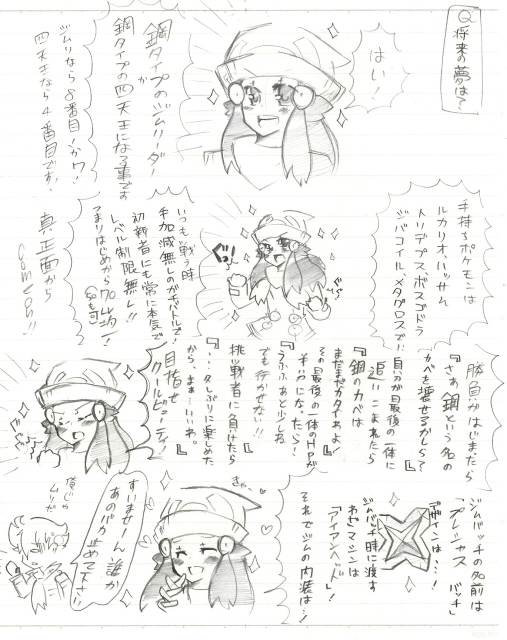 Q.将来の夢は?
はい!
鋼タイプのジムリーダー
か
鋼タイプの四天王になる事です
ジムリなら8番目!かワ!
四天王なら4番目です!
手持ちポケモンは
ルカリオ、ハッサム
トリデプス、ボスゴドラ
ジバコイル、メタグロスで!
いつも戦う時
手加減無しのガチバトルで!
初新者にも常に本気で
レベル制限無し!!
つまりはじめから70レベ以上!
真正面から
come on!!
勝負がはじまたら
『さあ鋼という名の
カベを壊せるかしら?』
自分が最後の一体に
追いこまれたら
『鋼のカベは
まだまだカタイわよ』
その最後の一体のHPが
半分になったら!
『うふふあと少しね
でも行かせない!!』
挑戦者に負けたら
『…久しぶりに楽しめた
から、まぁ…いいわ。』
目指せ
クールビューティ!
ジムバッチの名前は
「プレシャス バッチ」
デザインは…!
ジムバッチ時に渡す
わざマシンは
「アイアンヘッド」!
それでジムの内装は…!
きゃっ♡
すいませーん誰か
あのバカ止めて下さい
俺じゃ
ムリだ